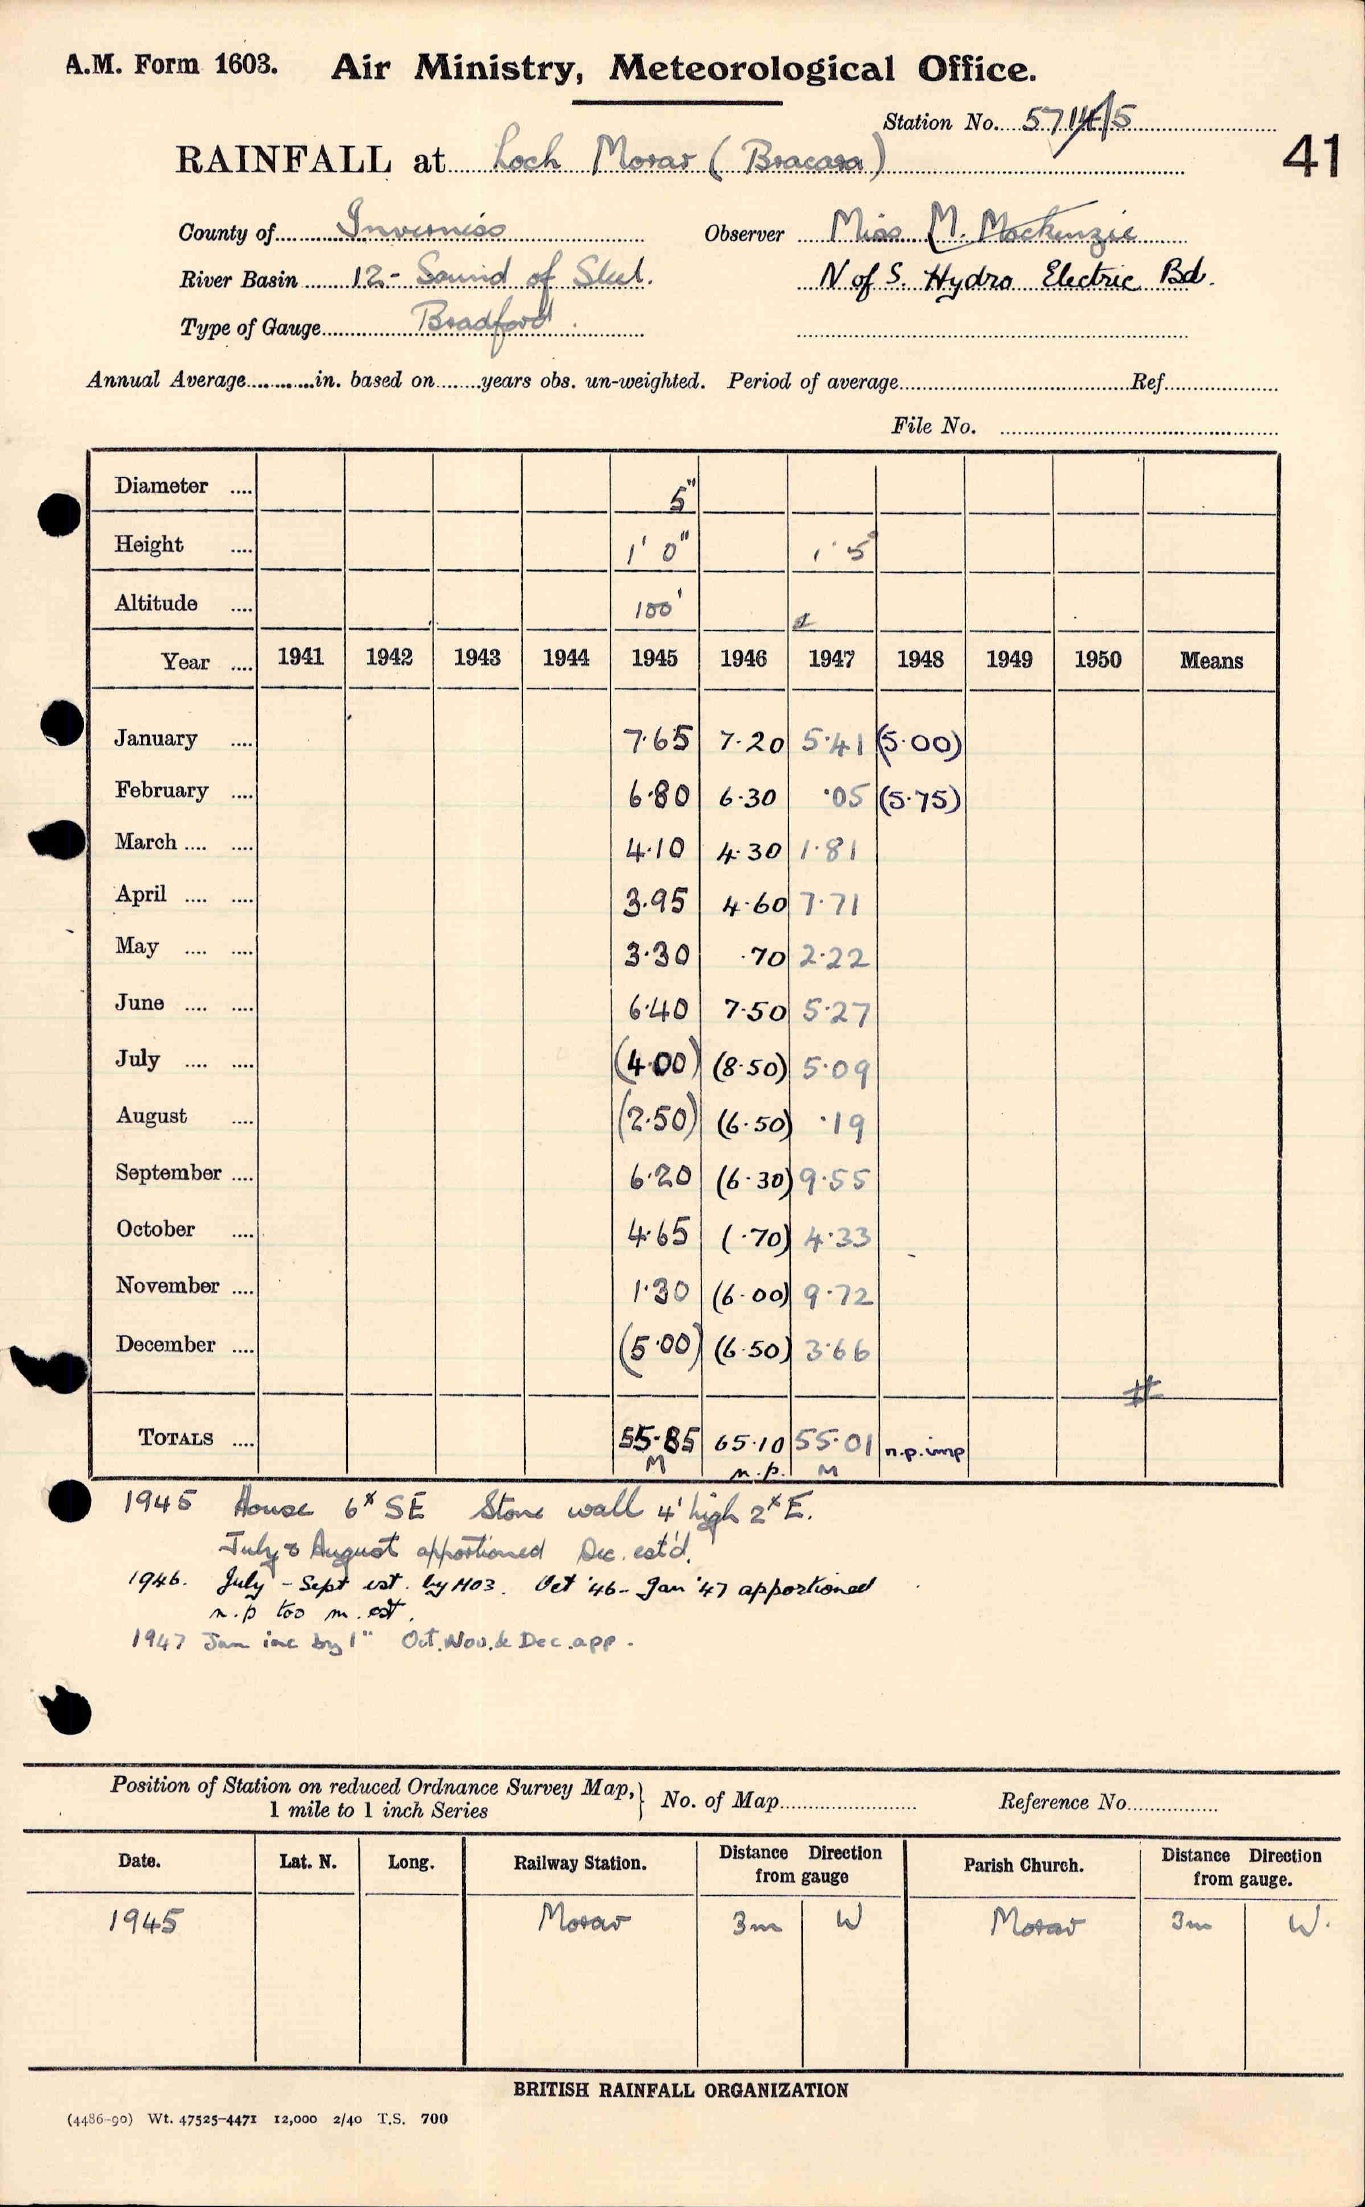 A.M. Form 1603. Air Ministry, Meteorological Office.
Station No. 5714/5
41
RAINFALL at Loch Morar (Bracara)
County of Inverness Observer Miss M. Mackenzie
River Basin 12 - Sound of Sleet. N of S. Hydro Electric Bd.
Type of Gauge Bradford.
Annual Average............in. based on........years obs. un-weighted. Period of average........Ref........
File No. ........
Diameter .... 5"
Height .... 1' 0" 1' 5"
Altitude .... 100'
Year .... 1941 1942 1943 1944 1945 1946 1947 1948 1949 1950 Means
January .... 7.65 7.20 5.41 (5.00)
February .... 6.80 6.30 .05 (5.75)
March .... .... 4.10 4.30 1.81
April .... .... 3.95 4.60 7.71
May .... .... 3.30 .70 2.22
June .... .... 6.40 7.50 5.27
July .... .... (4.00) (8.50) 5.09
August .... (2.50) (6.50) .19
September .... 6.20 (6.30) 9.55
October .... 4.65 (.70) 4.33
November .... 1.30 (6.00) 9.72
December .... (5.00) (6.50) 3.66
#
TOTALS .... 55.85 65.10 55.01 n.p. imp
M n.p. M
1945 House 6x SE Stone wall 4' high 2x E.
July & August apportioned Dec. est'd.
1946. July - Sept est. by M03. Oct '46 - Jan '47 apportioned
n.p too m. est.
1947 Jan inc by 1" Oct. Nov. & Dec. app.
Position of Station on reduced Ordnance Survey Map, } No. of Map........ Reference No........
1 mile to 1 inch Series
Date. Lat. N. Long. Railway Station. Distance Direction from gauge Parish Church. Distance Direction from gauge.
1945 Morar 3m W Morar 3m W.
BRITISH RAINFALL ORGANIZATION
(4486-90) Wt. 47525-4471 12,000 2/40 T.S. 700